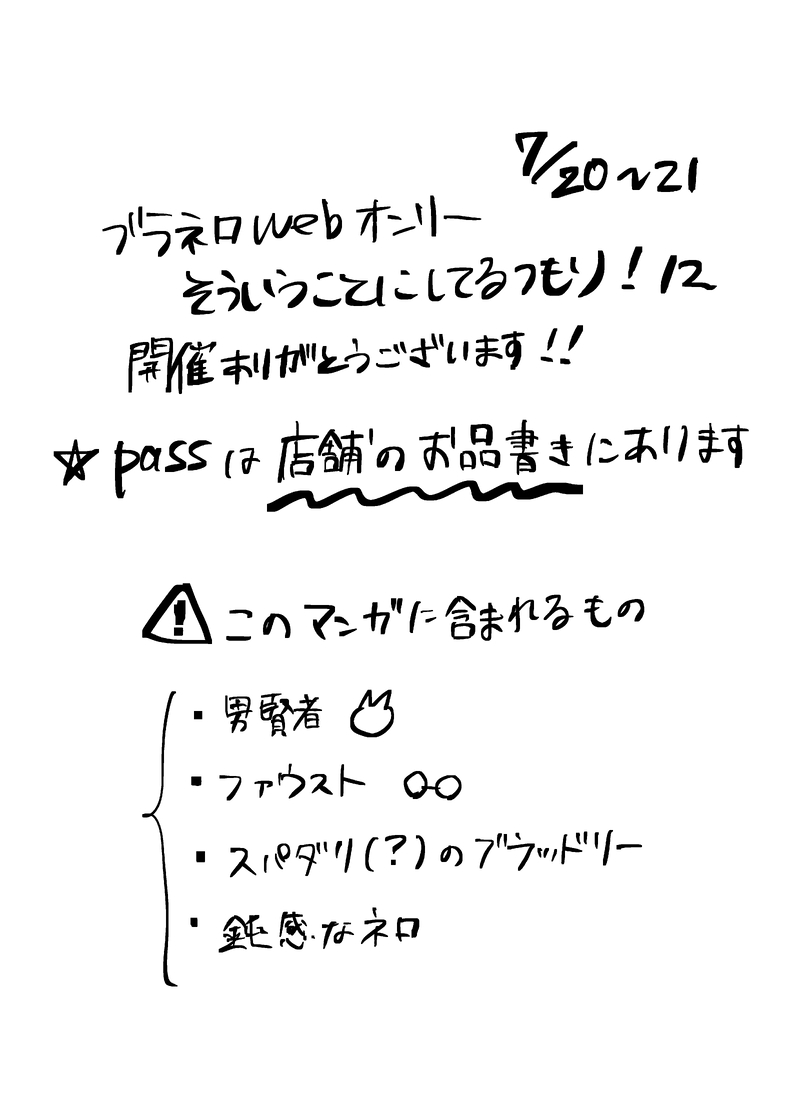 7/20~21
ブラネロwebオンリー
そういうことにしてるつもり!12
開催ありがとうございます!!
☆passは店舗のお品書きにあります
このマンガに含まれるもの
・男賢者
・ファウスト
・スパダリ(?)のブラッドリー
・鈍感なネロ